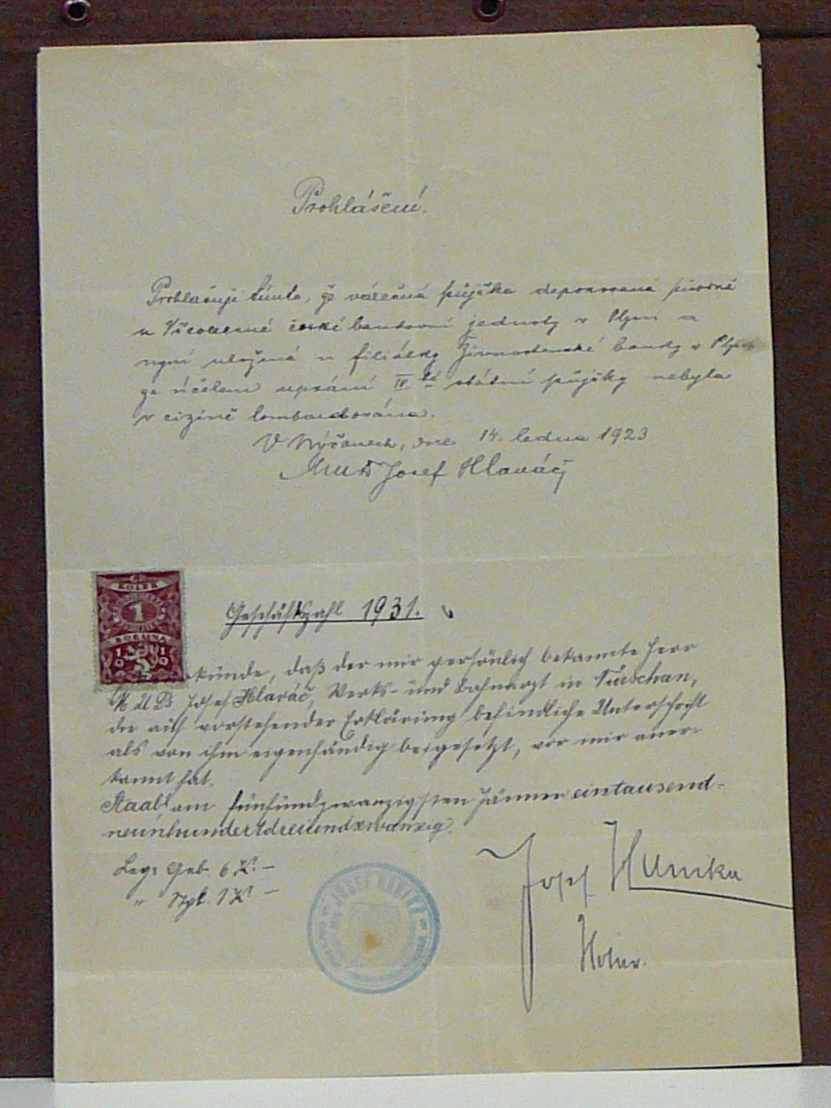 Prohlášení.
Prohlašuji tímto, že válečná půjčka deponovaná původně
u Všeobecné české bankovní jednoty v Plzni a
nyní uložená u filiálky Živnostenské banky v Plzni
za účelem upsání IV. té státní půjčky nebyla
v cizině lombardována.
V Nýřanech, dne 14. ledna 1923
MUDr Josef Hlaváč
KOLEK
1
KORUNA
Geschäftszahl 1931.
daß der mir persönlich bekannte Herr
MUDr Josef Hlaváč, Werks- und Bahnarzt in Nürschan,
die auf vorstehender Erklärung befindliche Unterschrift
als von ihm eigenhändig beigesetzt, vor mir aner-
kannt hat.
Staab am fünfundzwanzigsten Jänner eintausend-
neunhundertdreiundzwanzig.
Leg. Geb. 6 K -
" Stpl. 1 K -
Josef Hunka
Notar.